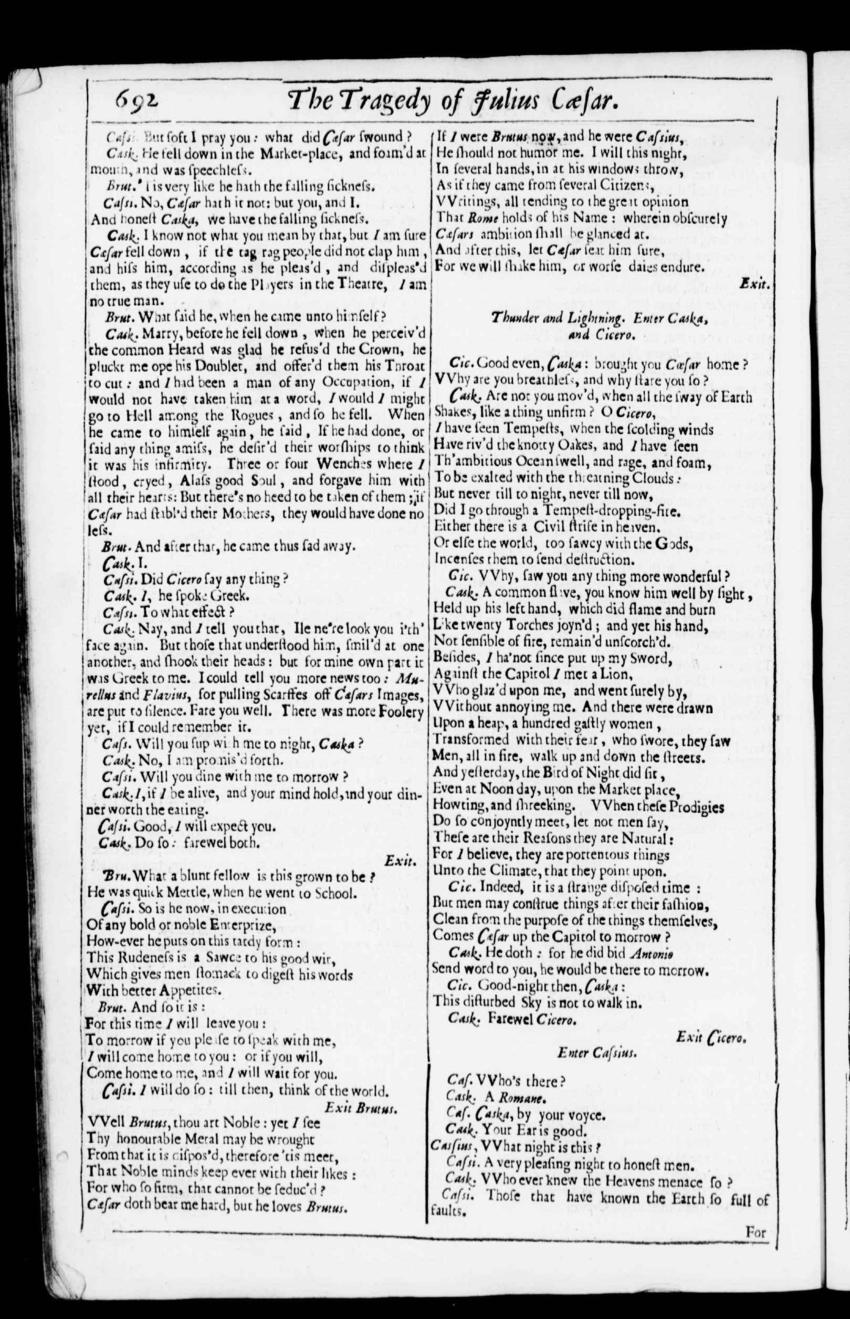 692
The Tragedy of Julius Cæſar.
Caſsi. But ſoft I pray you: what did Cæſar ſwound?
Cask. He fell down in the Market-place, and foam'd at
mouth, and was ſpeechleſs.
Brut. 'tis very like he hath the falling ſickneſs.
Caſsi. No, Cæſar hath it not: but you, and I.
And honeſt Caska, we have the falling ſickneſs.
Cask. I know not what you mean by that, but I am ſure
Cæſar fell down, if the tag rag people did not clap him,
and hiſs him, according as he pleas'd, and diſpleas'd
them, as they uſe to do the Players in the Theatre, I am
no true man.
Brut. What ſaid he, when he came unto himſelf?
Cask. Marry, before he fell down, when he perceiv'd
the common Heard was glad he refus'd the Crown, he
pluckt me ope his Doublet, and offer'd them his Throat
to cut: and I had been a man of any Occupation, if I
would not have taken him at a word, I would I might
go to Hell among the Rogues, and ſo he fell. When
he came to himſelf again, he ſaid, If he had done, or
ſaid any thing amiſs, he deſir'd their worſhips to think
it was his infirmity. Three or four Wenches where I
ſtood, cryed, Alaſs good Soul, and forgave him with
all their hearts: But there's no heed to be taken of them; if
Cæſar had ſtabb'd their Mothers, they would have done no
leſs.
Brut. And after that, he came thus ſad away.
Cask. I.
Caſsi. Did Cicero ſay any thing?
Cask. I, he ſpoke Greek.
Caſsi. To what effect?
Cask. Nay, and I tell you that, Ile ne're look you i'th'
face again. But thoſe that underſtood him, ſmil'd at one
another, and ſhook their heads: but for mine own part it
was Greek to me. I could tell you more news too: Mu-
rellus and Flavius, for pulling Scarffes off Cæſars Images,
are put to ſilence. Fare you well. There was more Foolery
yet, if I could remember it.
Caſs. Will you ſup with me to night, Caska?
Cask. No, I am promis'd forth.
Caſsi. Will you dine with me to morrow?
Cask. I, if I be alive, and your mind hold, and your din-
ner worth the eating.
Caſsi. Good, I will expect you.
Cask. Do ſo: farewel both.
Exit.
Bru. What a blunt fellow is this grown to be?
He was quick Mettle, when he went to School.
Caſsi. So is he now, in execution
Of any bold or noble Enterprize,
How-ever he puts on this tardy form:
This Rudeneſs is a Sawce to his good wit,
Which gives men ſtomack to digeſt his words
With better Appetites.
Brut. And ſo it is:
For this time I will leave you:
To morrow if you pleaſe to ſpeak with me,
I will come home to you: or if you will,
Come home to me, and I will wait for you.
Caſsi. I will do ſo: till then, think of the world.
Exit Brutus.
VVell Brutus, thou art Noble: yet I ſee
Thy honourable Metal may be wrought
From that it is diſpos'd, therefore 'tis meet,
That Noble minds keep ever with their likes:
For who ſo firm, that cannot be ſeduc'd?
Cæſar doth bear me hard, but he loves Brutus.
If I were Brutus now, and he were Caſsius,
He ſhould not humor me. I will this night,
In ſeveral hands, in at his windows throw,
As if they came from ſeveral Citizens,
VVritings, all tending to the great opinion
That Rome holds of his Name: wherein obſcurely
Cæſars ambition ſhall be glanced at.
And after this, let Cæſar ſeat him ſure,
For we will ſhake him, or worſe daies endure.
Exit.
Thunder and Lightning. Enter Caska,
and Cicero.
Cic. Good even, Caska: brought you Cæſar home?
VVhy are you breathleſs, and why ſtare you ſo?
Cask. Are not you mov'd, when all the ſway of Earth
Shakes, like a thing unfirm? O Cicero,
I have ſeen Tempeſts, when the ſcolding winds
Have riv'd the knotty Oakes, and I have ſeen
Th'ambitious Ocean ſwell, and rage, and foam,
To be exalted with the threatning Clouds:
But never till to night, never till now,
Did I go through a Tempeſt-dropping-fire.
Either there is a Civil ſtrife in heaven.
Or elſe the world, too ſawcy with the Gods,
Incenſes them to ſend deſtruction.
Cic. VVhy, ſaw you any thing more wonderful?
Cask. A common ſlave, you know him well by ſight,
Held up his left hand, which did flame and burn
Like twenty Torches joyn'd; and yet his hand,
Not ſenſible of fire, remain'd unſcorch'd.
Beſides, I ha'not ſince put up my Sword,
Againſt the Capitol I met a Lion,
VVho glaz'd upon me, and went ſurely by,
VVithout annoying me. And there were drawn
Upon a heap, a hundred gaſtly women,
Transformed with their fear, who ſwore, they ſaw
Men, all in fire, walk up and down the ſtreets.
And yeſterday, the Bird of Night did ſit,
Even at Noon day, upon the Market place,
Howting, and ſhreeking. VVhen theſe Prodigies
Do ſo conjoyntly meet, let not men ſay,
Theſe are their Reaſons they are Natural:
For I believe, they are portentous things
Unto the Climate, that they point upon.
Cic. Indeed, it is a ſtrange diſpoſed time:
But men may conſtrue things after their faſhion,
Clean from the purpoſe of the things themſelves,
Comes Cæſar up the Capitol to morrow?
Cask. He doth: for he did bid Antonio
Send word to you, he would be there to morrow.
Cic. Good-night then, Caska:
This diſturbed Sky is not to walk in.
Cask. Farewel Cicero.
Exit Cicero.
Enter Caſsius.
Caſ. VVho's there?
Cask. A Romane.
Caſ. Caska, by your voyce.
Cask. Your Ear is good.
Caſsius, VVhat night is this?
Caſsi. A very pleaſing night to honeſt men.
Cask. VVho ever knew the Heavens menace ſo?
Caſsi. Thoſe that have known the Earth ſo full of
faults.
For